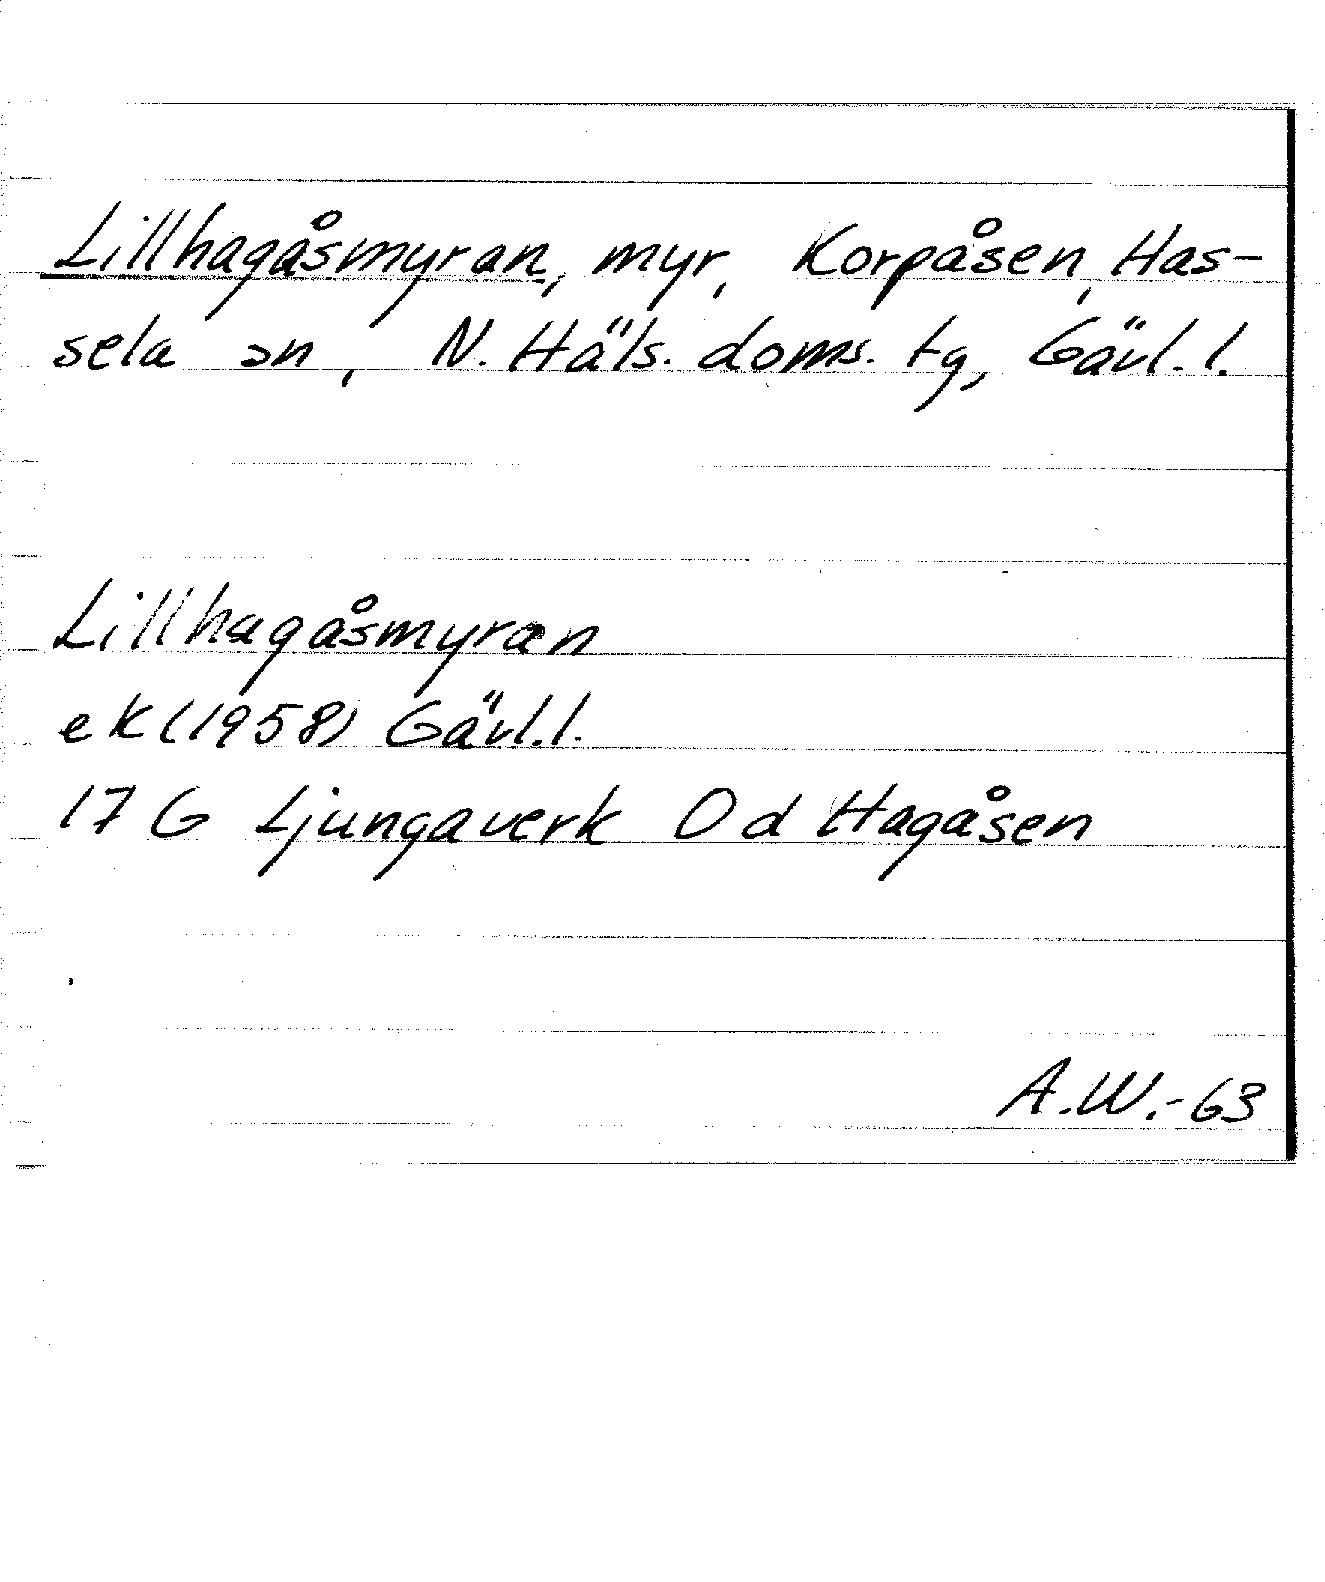 Lillhagåsmyran, myr, Korpåsen, Has-
sela sn, N. Häls. doms. tg, Gävl. l.
Lillhagåsmyran
eK (1958) Gävl. l.
17 G Ljungaverk 0 d Hagåsen
A.W.-63